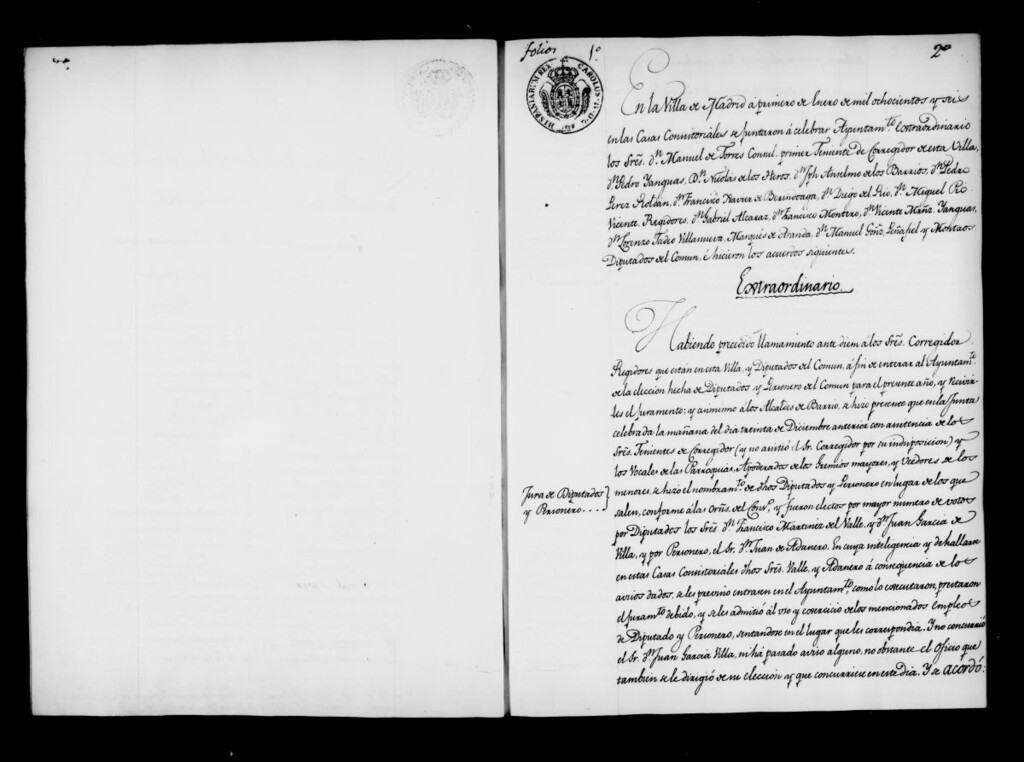 folios 1.º
2º
HISPANIARUM REX CAROLUS IV D. G.
En la Villa de Madrid á primero de Enero de mil ochocientos y seis
en las Casas Consistoriales se juntaron á celebrar Ayuntam.to extraordinario
los Srēs. D.n Manuel de Torres Consul, primer Teniente de Corregidor de esta Villa,
D.n Pedro Yanguas, D.n Nicolás de los Heros, D.n Jph Anselmo de los Barrios, D.n Pedro
Perez Roldan, D.n Francisco Xavier de Berindoaga, D.n Diego del Rio, D.n Miguel Ro
Vicente, Regidores, D.n Gabriel Alcaraz, D.n Francisco Montero, D.n Vicente Mrñz. Yanguas,
D.n Lorenzo Tadeo Villanueva, Marques de Aranda, D.n Manuel Goñz. Peñafiel y Montaos
Diputados del Comun, é hicieron los acuerdos siguientes.
Extraordinario.
Habiendo precedido llamamiento ante diem á los Srēs. Corregidor
Regidores que están en esta Villa, y Diputados del Comun, á fin de enterar al Ayuntam.to
de la eleccion hecha de Diputados y Personero del Comun para el presente año, y recivir-
les el juramento; y asimismo á los Alcaldes de Barrio, se hizo presente que en la Junta
celebrada la mañana del dia treinta de Diciembre anterior con asistencia de los
Srēs. Tenientes de Corregidor (y no asistió el Sr. Corregidor por su indisposicion) y
los Vocales de las Parroquias, Apoderados de los Gremios mayores, y Veedores de los
menores, se hizo el nombram.to de dhos Diputados y Personero en lugar de los que
Jura de Diputados
y Personero....
salen, conforme á las Orñs. del Cons.o, y fueron electos por mayor numero de votos
por Diputados los Srēs. D.n Francisco Martinez del Valle, y D.n Juan Garcia de
Villa, y por Personero, el Sr. D.n Juan de Adanero. En cuya inteligencia y de hallarse
en estas Casas Consistoriales dhos Srēs. Valle, y Adanero á conseqüencia de los
avisos dados, se les previno entrasen en el Ayuntam.to, como lo executaron, prestaron
el juram.to debido, y se les admitió al uso y exercicio de los mencionados empleos
de Diputado y Personero, sentandose en el lugar que les correspondia. Y no concurrió
el Sr. D.n Juan Garcia Villa, ni há pasado aviso alguno, no obstante el Oficio que
tambien se le dirigió de su eleccion y que concurriese en este dia. Y se acordó: